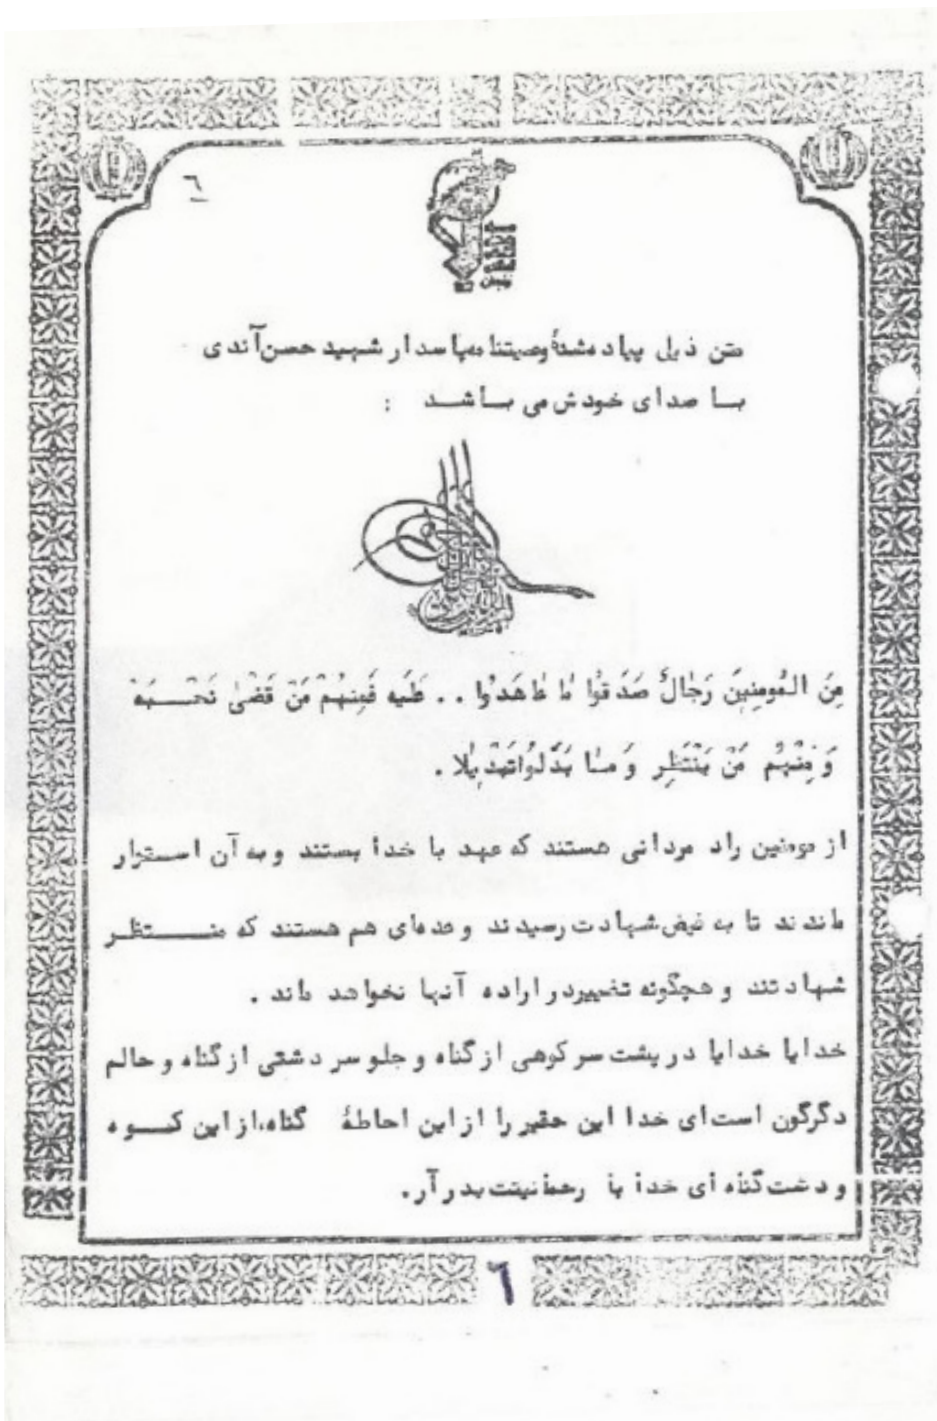 ٦
متن ذیل پیاده شدهٔ وصیتنامه پاسدار شهید حسن آندی
بـا صدای خودش می بـاشـد :
مِنَ المُومِنینَ رَجٰالٌ صَدَقُوا مٰا عٰاهَدُوا . . عَلَیه فَمِنهُمْ مَنْ قَضیٰ نَحْـــبَهْ
وَ مِنْهُم مَنْ یَنْتَظِر وَ مـٰا بَدَّلُواتَبْدیٖلا .
از مومنین راد مردانی هستند که عهد با خدا بستند و به آن استـرار
ماندند تا به فیض شهادت رسیدند و عده‌ای هم هستند که منـــتظـر
شهادتند و هیچگونه تغییردر اراده آنها نخواهد ماند .
خدایا خدایا در پشت سر کوهی از گناه و جلو سر دشتی از گناه و حالم
دگرگون است‌ای خدا این حقیر را از این احاطهٔ گناه،از این کـــوه
و دشت گناه ای خدا با رحمانیتت بدر آر.
٦